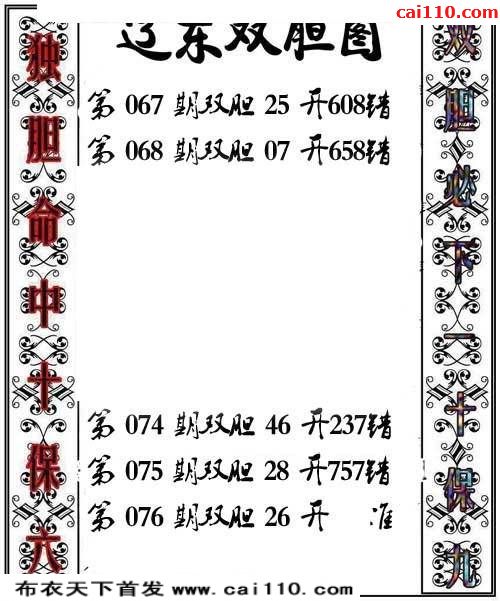 cai110.com
辽东双胆图
独胆命中十保六
第 067 期双胆 25 开608错
第 068 期双胆 07 开658错
第 074 期双胆 46 开237错
第 075 期双胆 28 开757错
第 076 期双胆 26 开 准
双胆必下一十保九
布衣天下首发 www.cai110.com